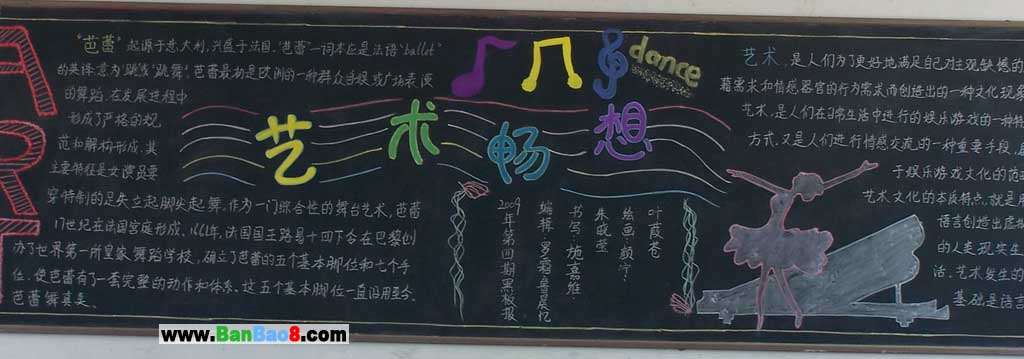 ART
"芭蕾"起源于意大利,兴盛于法国,"芭蕾"一词本应是法语"ballet"
的英译,意为"跳"或"跳舞"。芭蕾最初是欧洲的一种群众自娱或广场表演
的舞蹈,在发展进程中
形成了严格的规
范和解构形成,其
主要特征是女演员要
穿特制的足尖立起脚尖起舞。作为一门综合性的舞台艺术,芭蕾
17世纪在法国宫庭形成,1661年,法国国王路易十四下令在巴黎创
办了世界第一所皇家舞蹈学校,确立了芭蕾的五个基本脚位和七个手
位,使芭蕾有了一套完整的动作和体系。这五个基本脚位一直沿用至今。
芭蕾舞其
dance
艺术畅想
叶葭苍
绘画:颜
朱晓莹
书写:施
编辑:罗霜
2009年第四期黑板报
艺术,是人们为了更好地满足自己对主观缺憾的
需求和情感器官的行为需求而创造出的一种文化现象
艺术,是人们在日常生活中进行的娱乐游戏的一种特
方式,又是人们进行情感交流的一种重要手段,
于娱乐游戏文化的范
艺术文化的本质特点,就是用
语言创造出虚拟
的人类现实生
活。艺术发生的
基础是语言
www.BanBao8.com